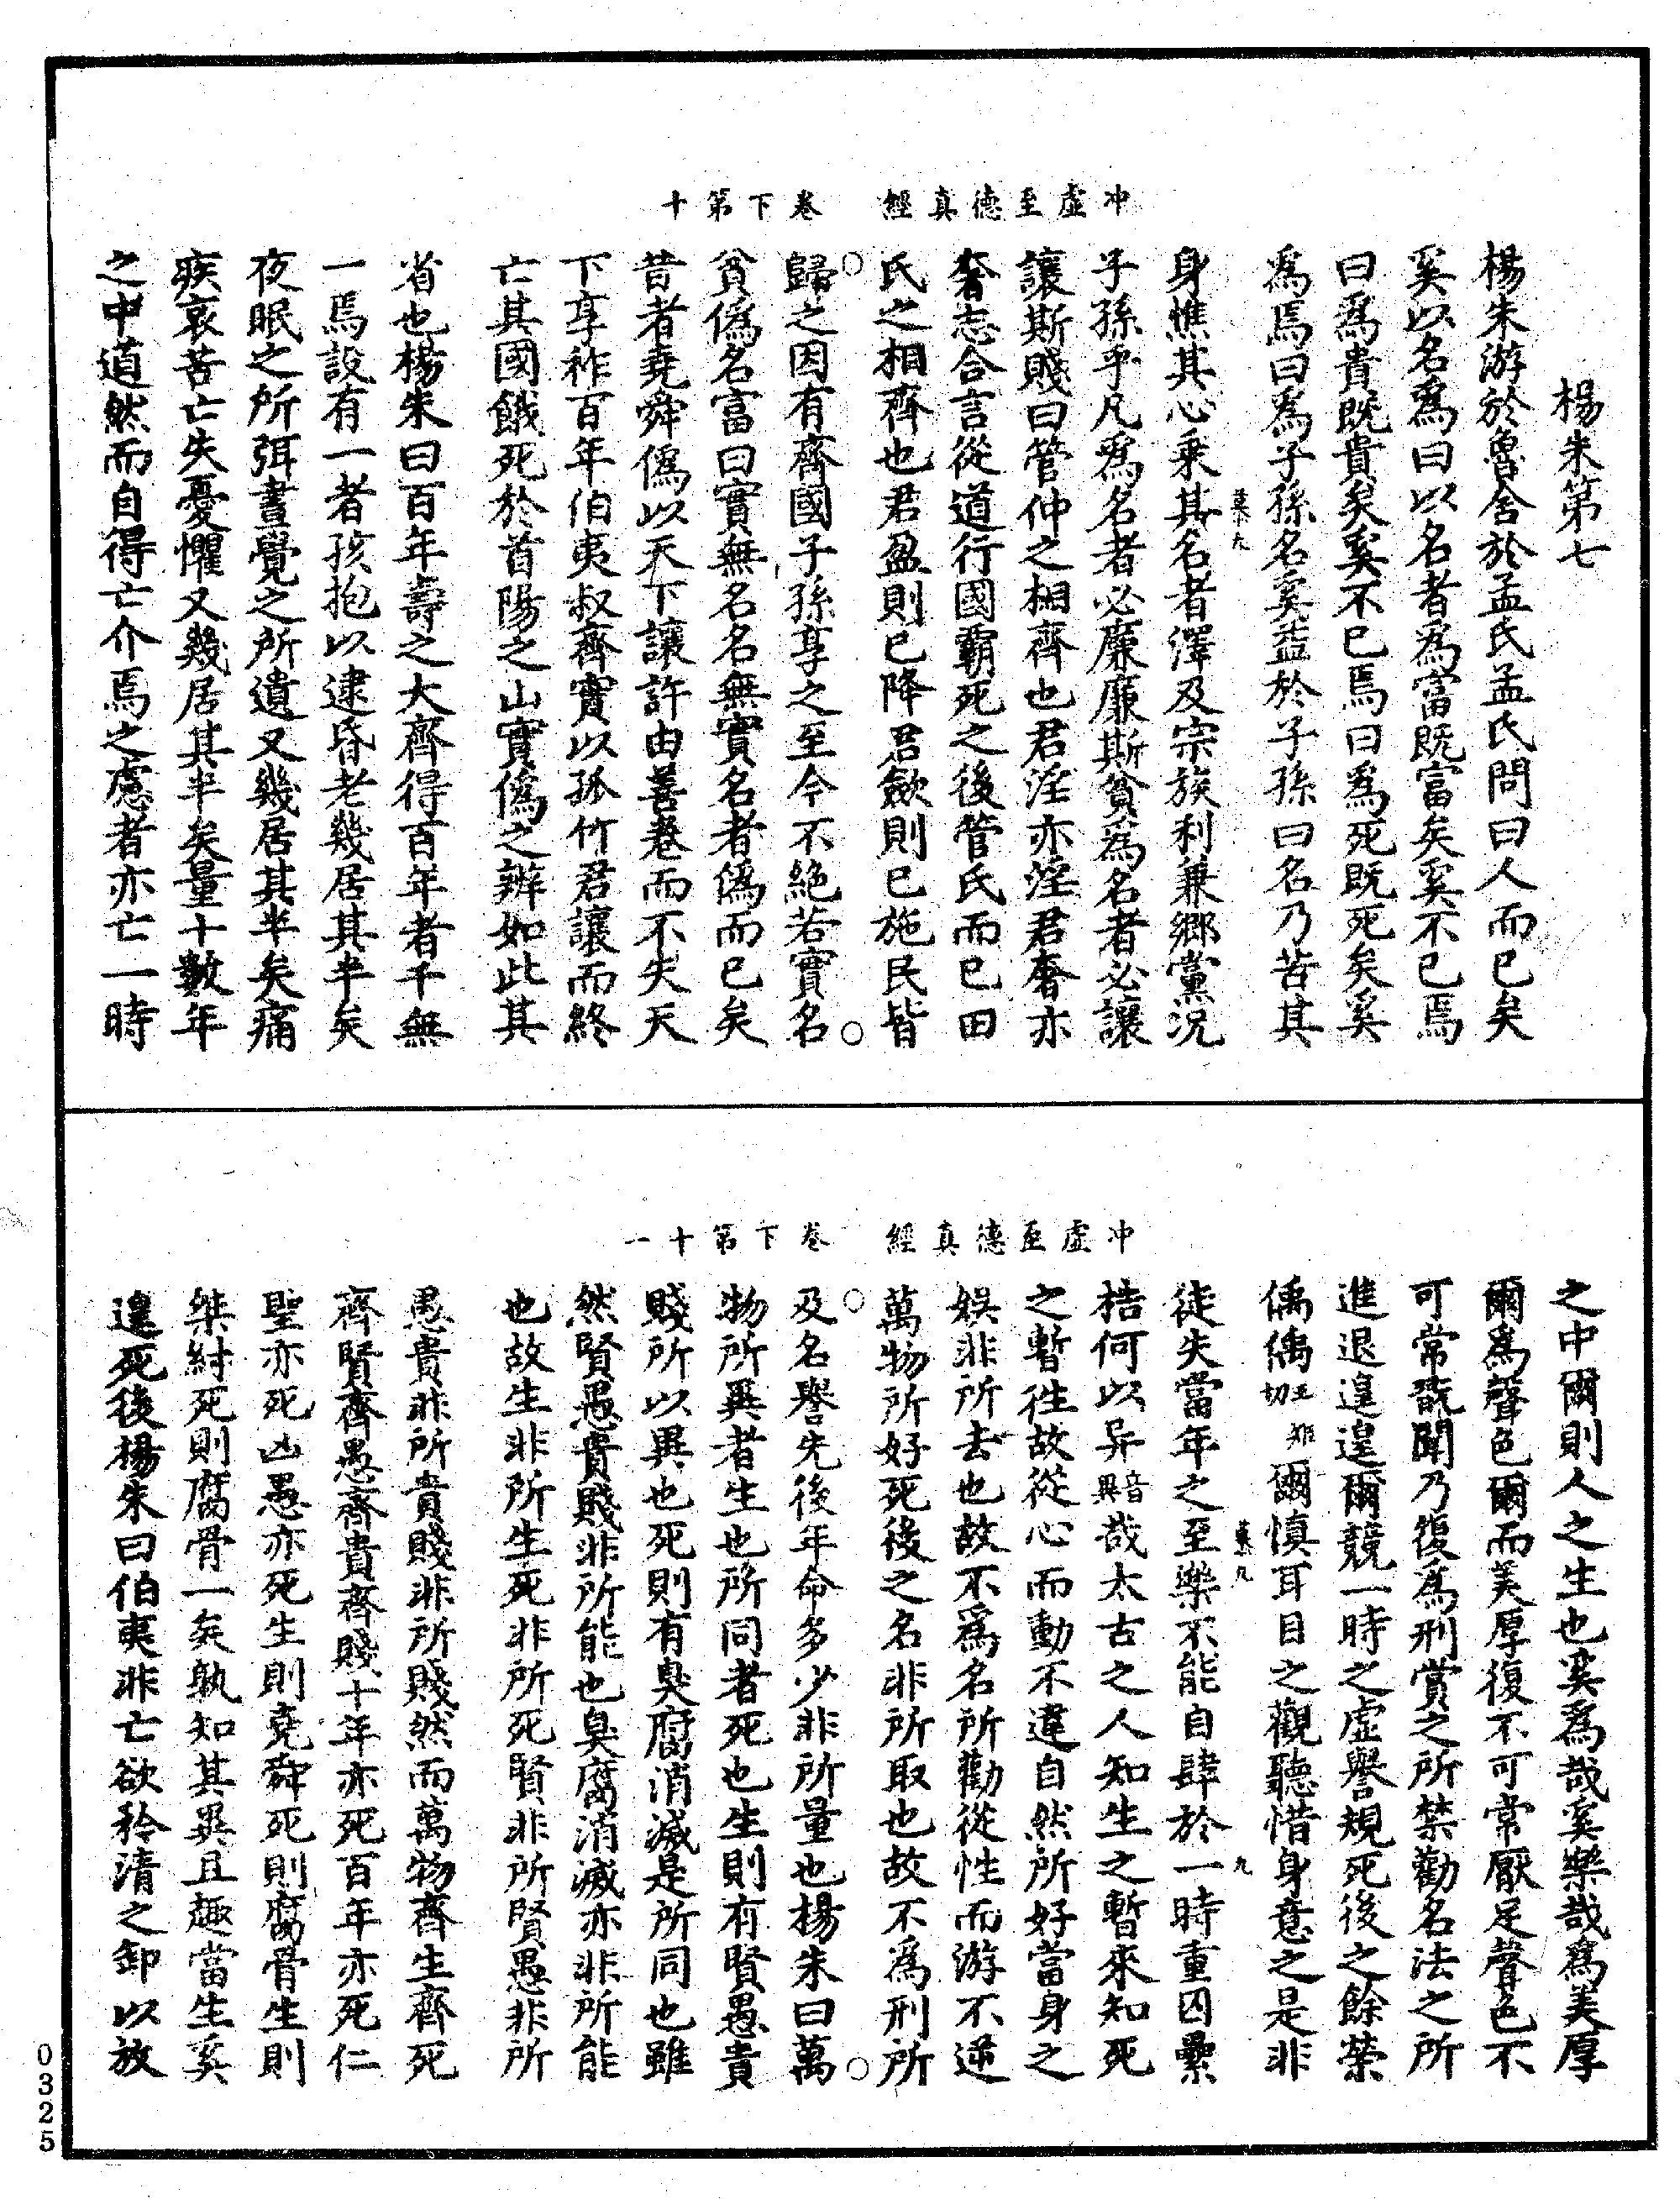 冲虛至德真經　卷下第十
楊朱第七
楊朱游於魯舍於孟氏孟氏問曰人而已矣
奚以名爲曰以名者爲富既富矣奚不已焉
曰爲貴既貴矣奚不已焉曰爲死既死矣奚
爲焉曰爲子孫名奚益於子孫曰名乃苦其
身憔其心乘其名者澤及宗族利兼鄉黨況
子孫乎凡爲名者必廉廉斯貧爲名者必讓
讓斯賤曰管仲之相齊也君淫亦淫君奢亦
奢志合言從道行國霸死之後管氏而已田
氏之相齊也君盈則已降君歛則已施民皆
歸之因有齊國子孫享之至今不絶若實名
貧僞名富曰實無名名無實名者僞而已矣
昔者堯舜僞以天下讓許由善卷而不失天
下享祚百年伯夷叔齊實以孤竹君讓而終
亡其國餓死於首陽之山實僞之辨如此其
省也楊朱曰百年壽之大齊得百年者千無
一焉設有一者孩抱以逮昏老幾居其半矣
夜眠之所弭晝覺之所遺又幾居其半矣痛
疾哀苦亡失憂懼又幾居其半矣量十數年
之中逌然而自得亡介焉之慮者亦亡一時
冲虛至德真經　卷下第十一
之中爾則人之生也奚爲哉奚樂哉爲美厚
爾爲聲色爾而美厚復不可常厭足聲色不
可常翫聞乃復爲刑賞之所禁勸名法之所
進退遑遑爾競一時之虛譽規死後之餘榮
偊偊爾慎耳目之觀聽惜身意之是非
徒失當年之至樂不能自肆於一時重囚纍
梏何以异音異哉太古之人知生之暫來知死
之暫往故從心而動不違自然所好當身之
娛非所去也故不爲名所勸從性而游不逆
萬物所好死後之名非所取也故不爲刑所
及名譽先後年命多少非所量也楊朱曰萬
物所異者生也所同者死也生則有賢愚貴
賤所以異也死則有臭腐消滅是所同也雖
然賢愚貴賤非所能也臭腐消滅亦非所能
也故生非所生死非所死賢非所賢愚非所
愚貴非所貴賤非所賤然而萬物齊生齊死
齊賢齊愚齊貴齊賤十年亦死百年亦死仁
聖亦死凶愚亦死生則堯舜死則腐骨生則
桀紂死則腐骨一矣孰知其異且趣當生奚
遑死後楊朱曰伯夷非亡欲矜清之卸以放
0325